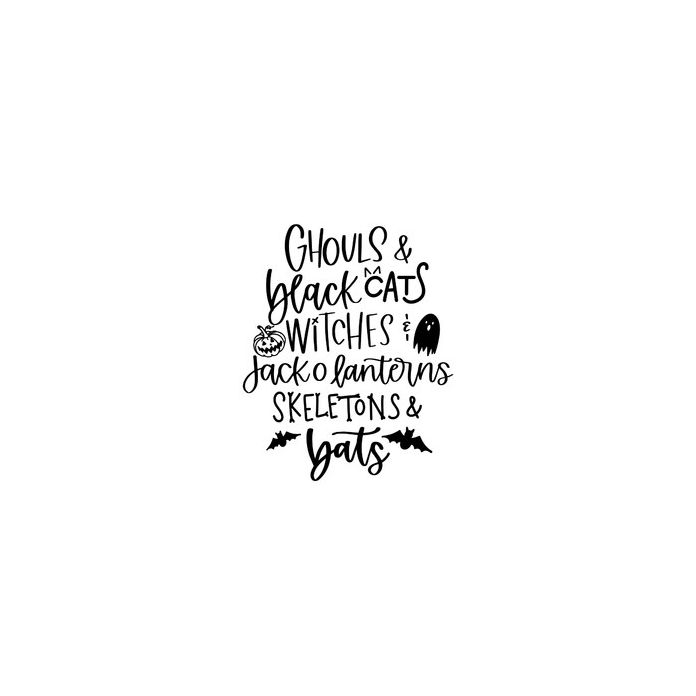 GHOULS &
black CATS
WiTCHES &
Jack o lanterns
SKELETONS &
bats